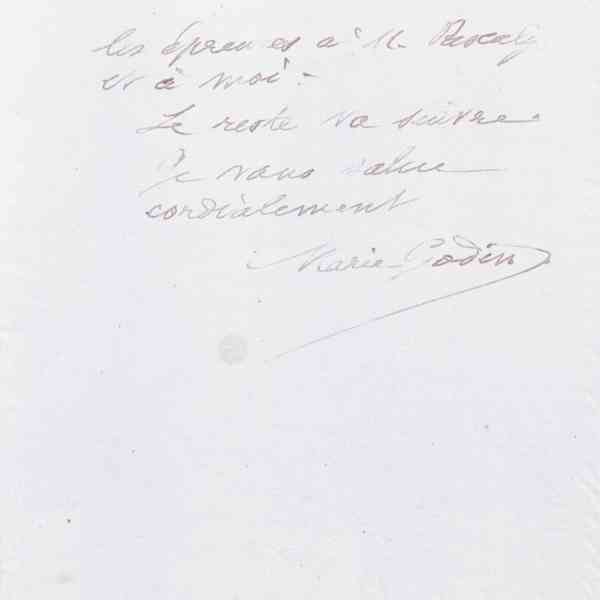 les épreuves à M. Pascaly
et à moi -
Le reste va suivre.
Je vous salue
cordialement
Marie Godin